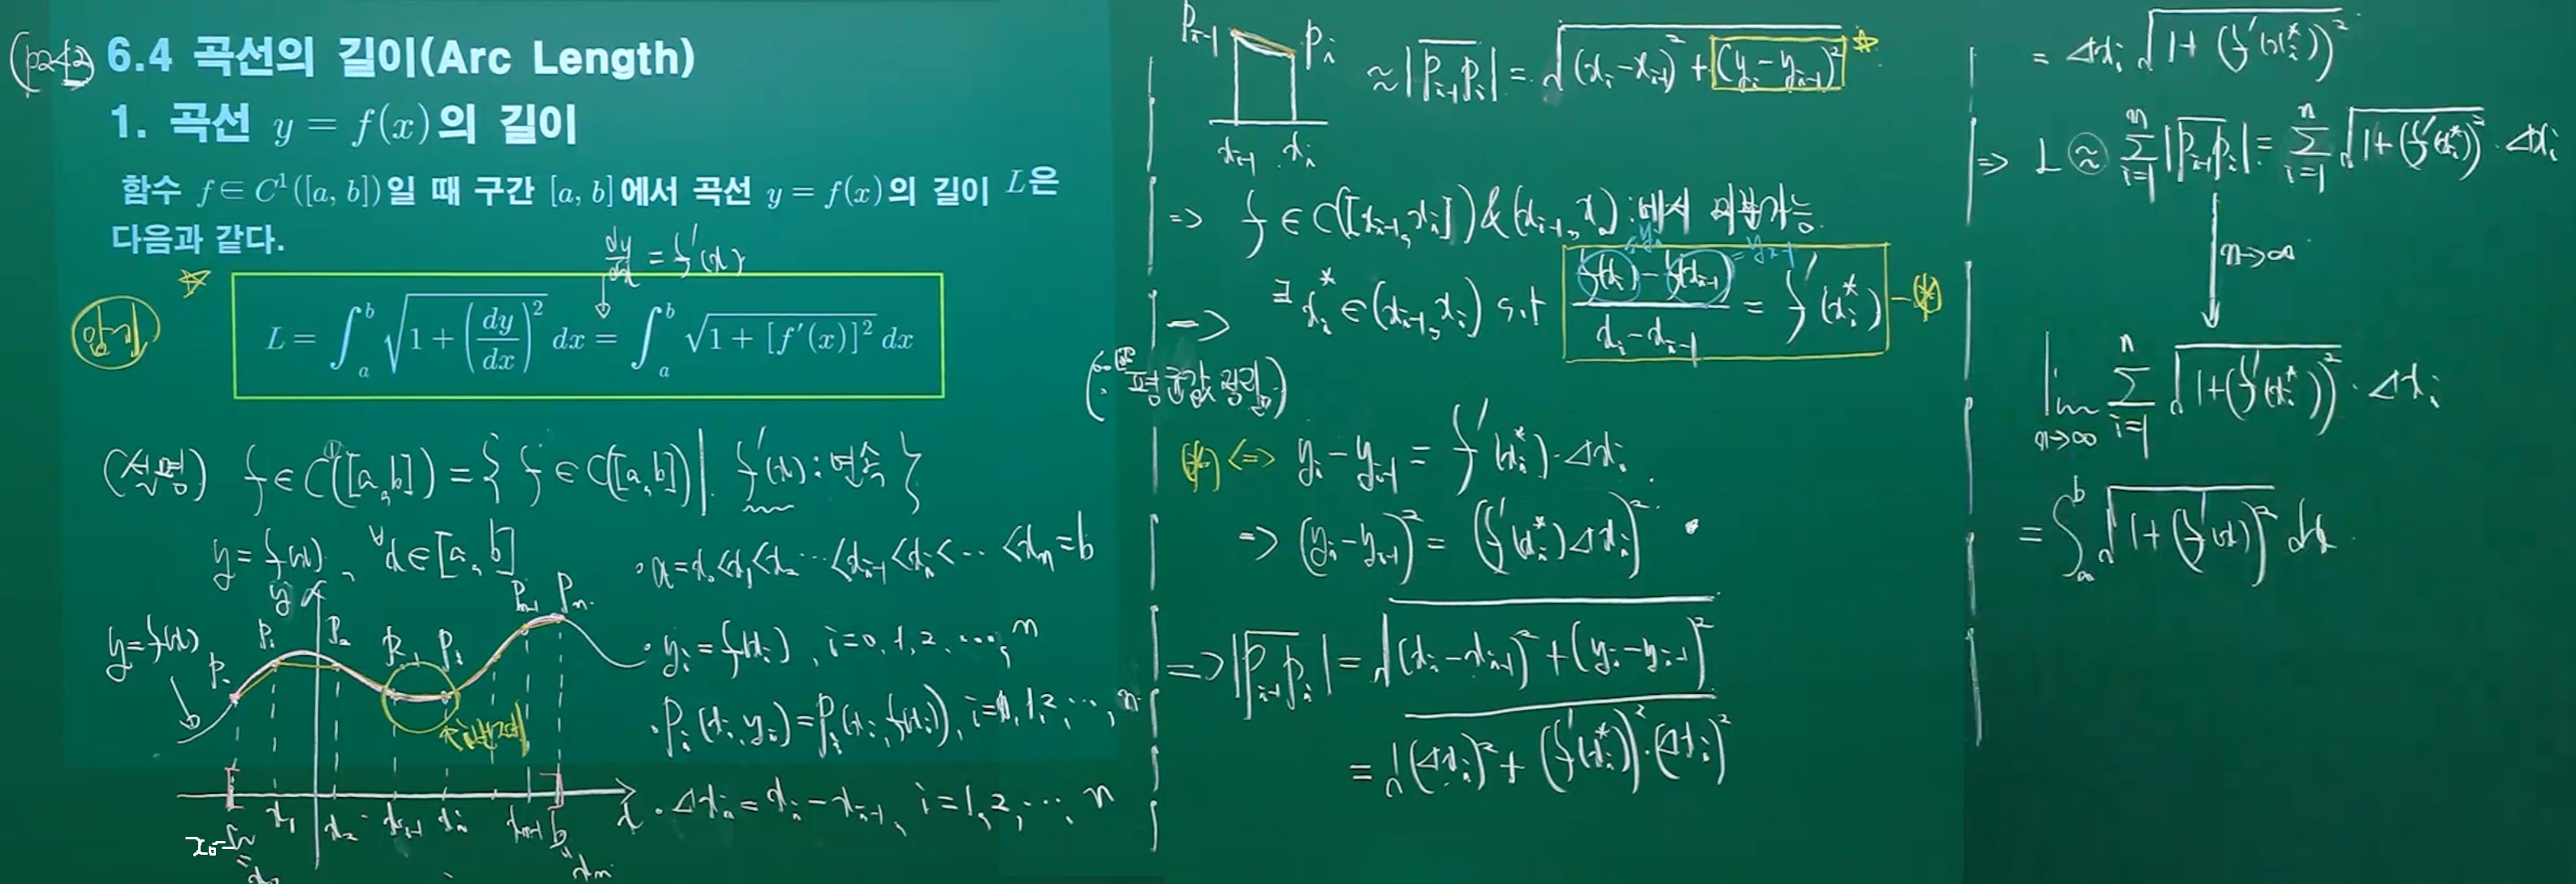 (p242) 6.4 곡선의 길이(Arc Length)
1. 곡선 y = f(x)의 길이
함수 f ∈ C¹([a, b])일 때 구간 [a, b]에서 곡선 y = f(x)의 길이 L은
다음과 같다.
dy/dx = f'(x)
암기
L = ∫_a^b √(1 + (dy/dx)²) dx = ∫_a^b √(1 + [f'(x)]²) dx
(설명) f ∈ C¹([a, b]) = { f ∈ C([a, b]) | f'(x) : 연속 }
y = f(x), ∀x ∈ [a, b]
· a = x₀ < x₁ < x₂ ⋯ < x_{i-1} < x_i < ⋯ < x_n = b
y
y = f(x)
P₀ P₁ P₂ P_{i-1} P_i P_{n-1} P_n
· y_i = f(x_i), i = 0, 1, 2, ⋯, n
· P_i(x_i, y_i) = P_i(x_i, f(x_i)), i = 0, 1, 2, ⋯, n
x
· Δx_i = x_i − x_{i-1}, i = 1, 2, ⋯, n
x₀= a x₁ x₂ x_{i-1} x_i x_{n-1} b
= x₀
= x_n
P_{i-1} P_i
x_{i-1} x_i
≈ |P_{i-1}P_i| = √((x_i − x_{i-1})² + (y_i − y_{i-1})²)
⇒ f ∈ C([x_{i-1}, x_i]) & (x_{i-1}, x_i) : 에서 미분가능
= y_i = y_{i-1}
⇒ ∃ x_i* ∈ (x_{i-1}, x_i) s.t (f(x_i) − f(x_{i-1}))/(x_i − x_{i-1}) = f'(x_i*) − (*)
(∵ 평균값 정리)
(*) ⇔ y_i − y_{i-1} = f'(x_i*)·Δx_i
⇒ (y_i − y_{i-1})² = (f'(x_i*)Δx_i)²
⇒ |P_{i-1}P_i| = √((x_i − x_{i-1})² + (y_i − y_{i-1})²)
= √((Δx_i)² + (f'(x_i*))²·(Δx_i)²)
= Δx_i √(1 + (f'(x_i*))²)
⇒ L ≈ Σ_{i=1}^n |P_{i-1}P_i| = Σ_{i=1}^n √(1 + (f'(x_i*))²)·Δx_i
n→∞
lim_{n→∞} Σ_{i=1}^n √(1 + (f'(x_i*))²)·Δx_i
= ∫_a^b √(1 + (f'(x))²) dx